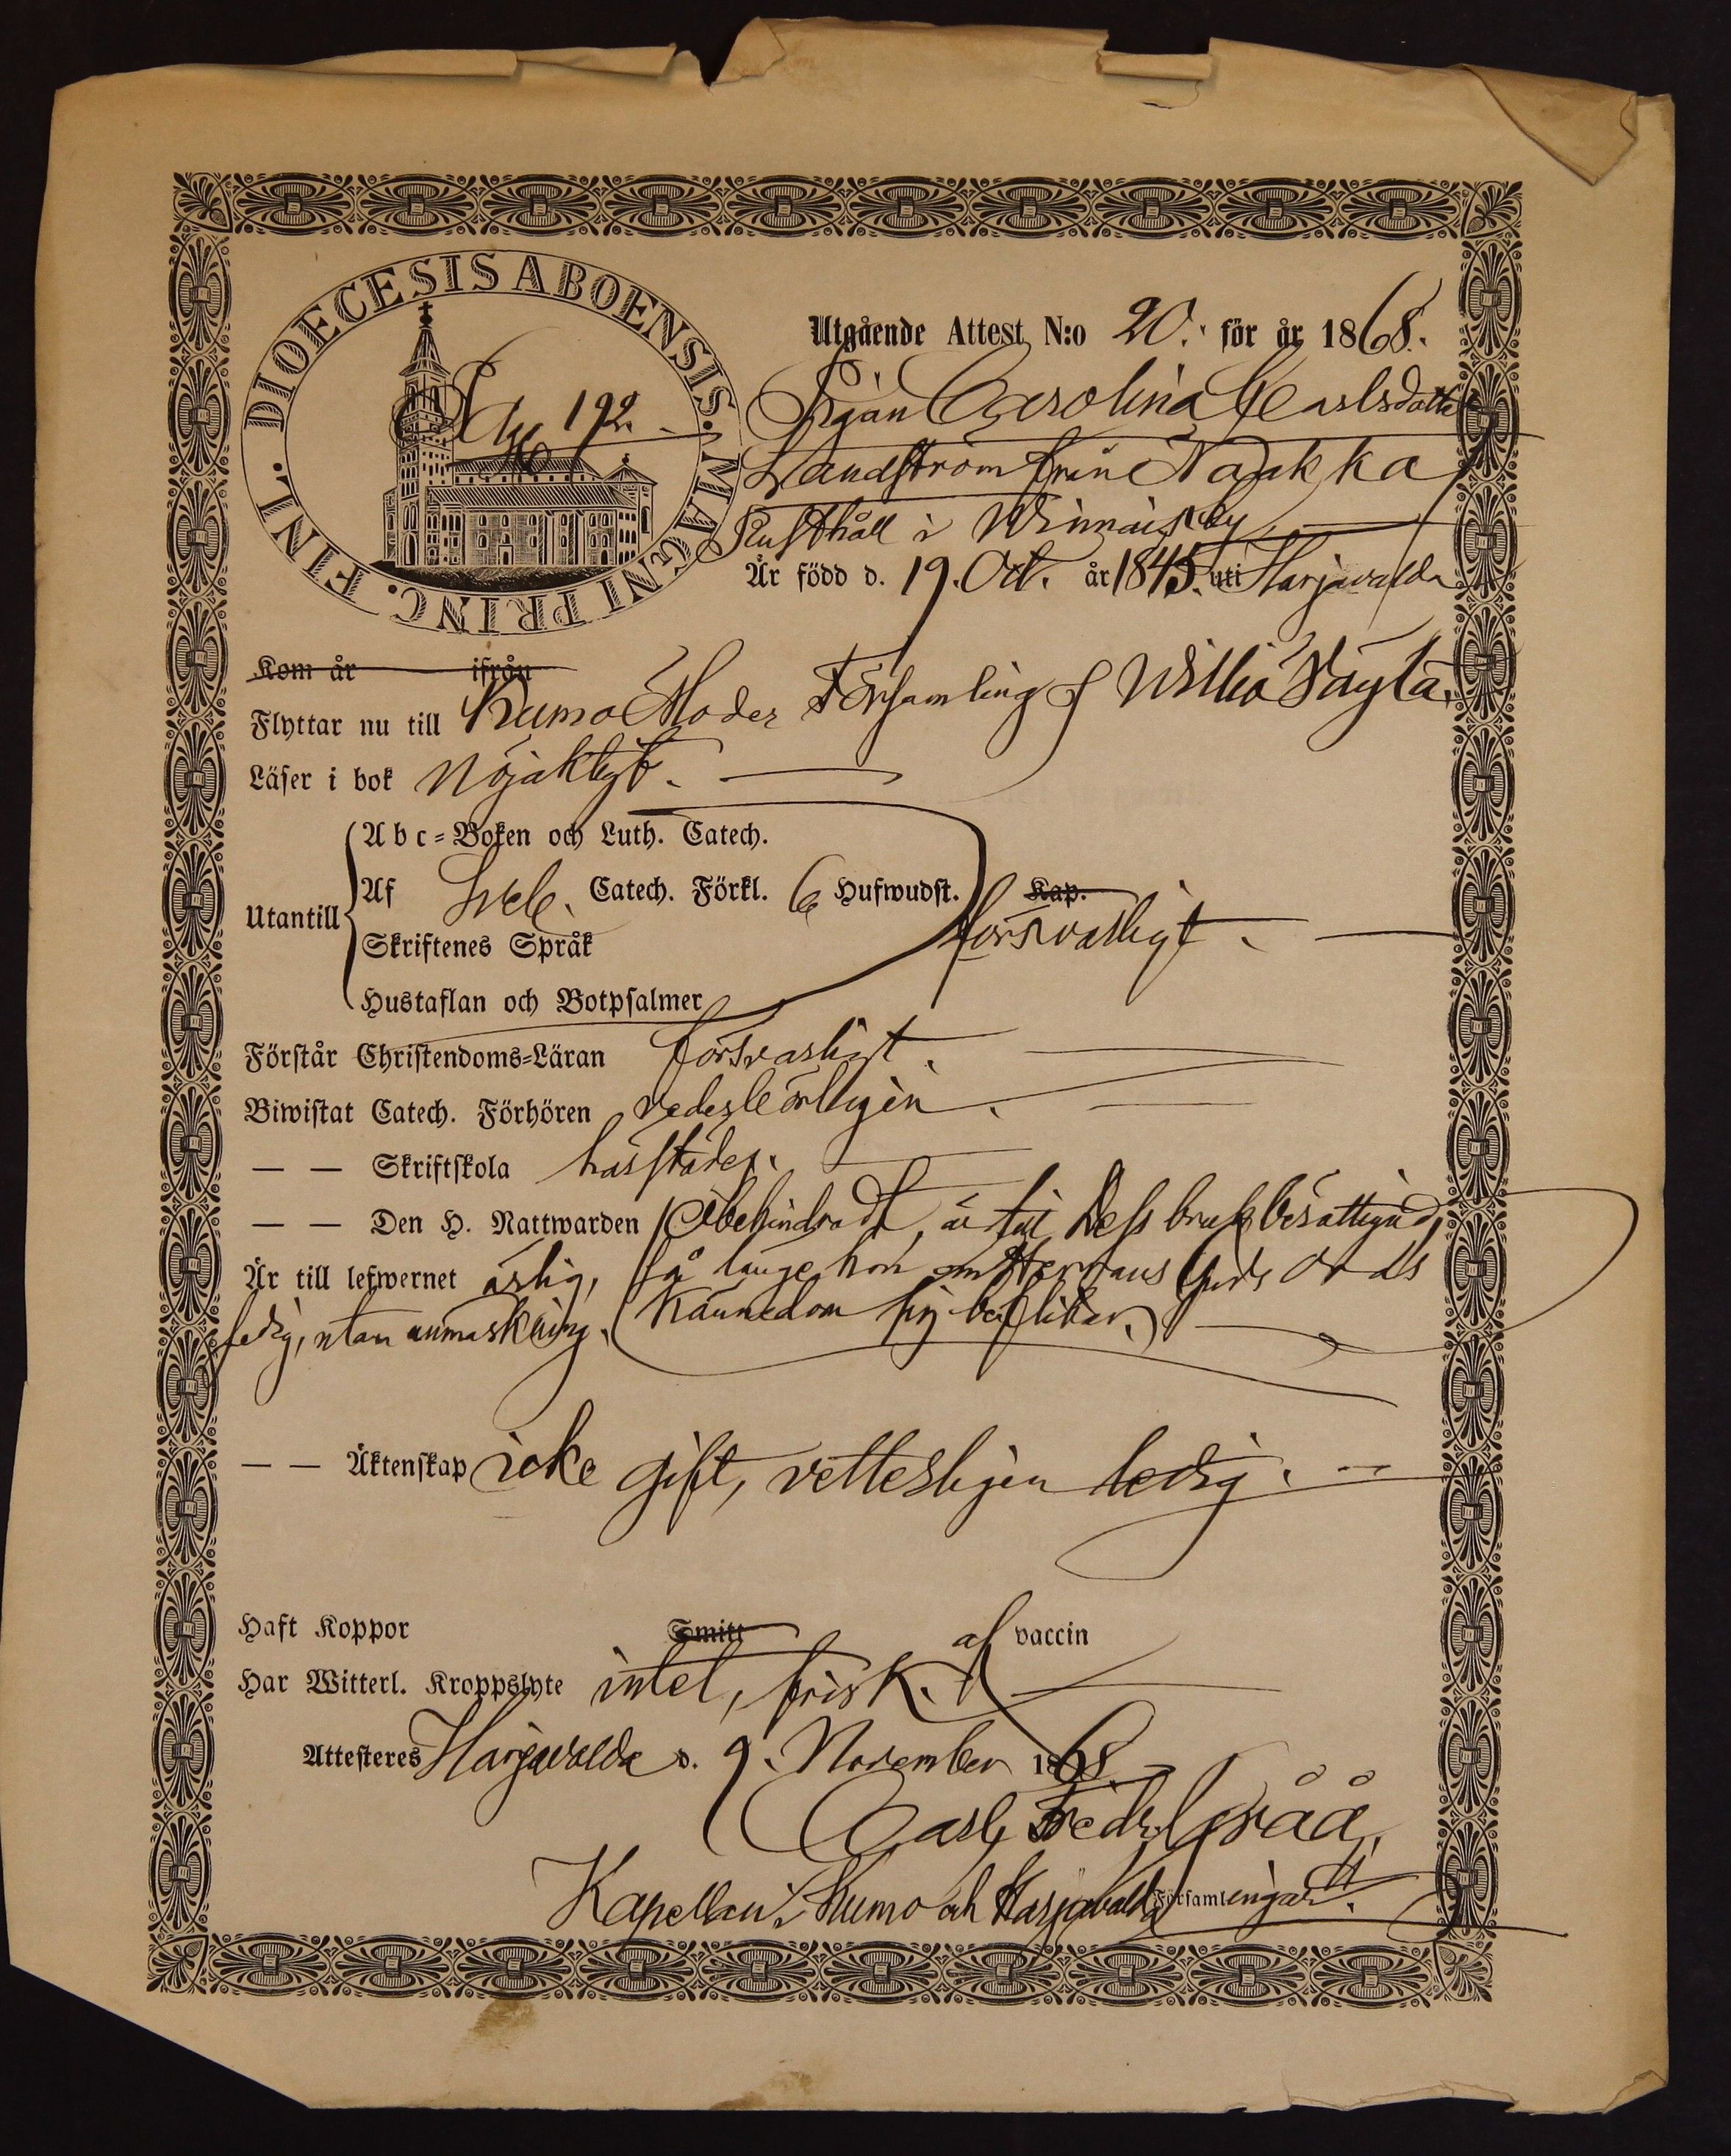 DIOECESIS ABOENSIS. MAGNI PRINC. FINL.
192.
Utgående Attest N:o 20. för år 1868.
Pigan Carolina Carlsdotter
Landström från Naukka
Rusthåll i Winnais by
Är född d. 19. Oct. år 1845. uti Harjavalda
Kom år ifrån
Flyttar nu till Kumo Moder Församling
Läser i bok Nöjaktigt.
Utantill
Abc-Boken och Luth. Catech.
Af Sveb. Catech. Förkl. 6 Hufwudst. Kap.
försvarligt.
Skriftenes Språk
Hustaflan och Botpsalmer
Förstår Christendoms-Läran försvarligt.
Biwistat Catech. Förhören vederbörligen.
— — Skriftskola härstädes.
— — Den H. Nattwarden obehindradt, är till dess bruk berättigad,
Är till lefwernet ärlig, så länge hon Guds Ords
ledig, utan anmärkning. Kännedom sig beflitar.
— — Äktenskap icke gift, vetterligen ledig.
Haft Koppor Smitt af vaccin
Har Witterl. Kroppslyte intet, frisk.
Attesteres Harjavalda d. 9. November 1868
Carl Fredr. Gråå,
Kapellan i Kumo och Harjavalda Församlingar.